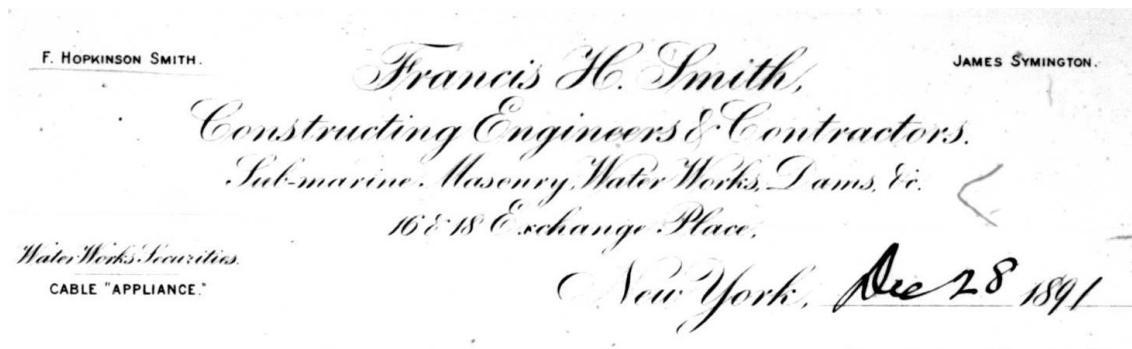 F. HOPKINSON SMITH.
JAMES SYMINGTON.
Francis H. Smith,
Constructing Engineers & Contractors.
Sub-marine Masonry, Water Works, Dams, &c.
16 & 18 Exchange Place,
Water Works Securities.
CABLE "APPLIANCE."
New York, Dec 28 1891